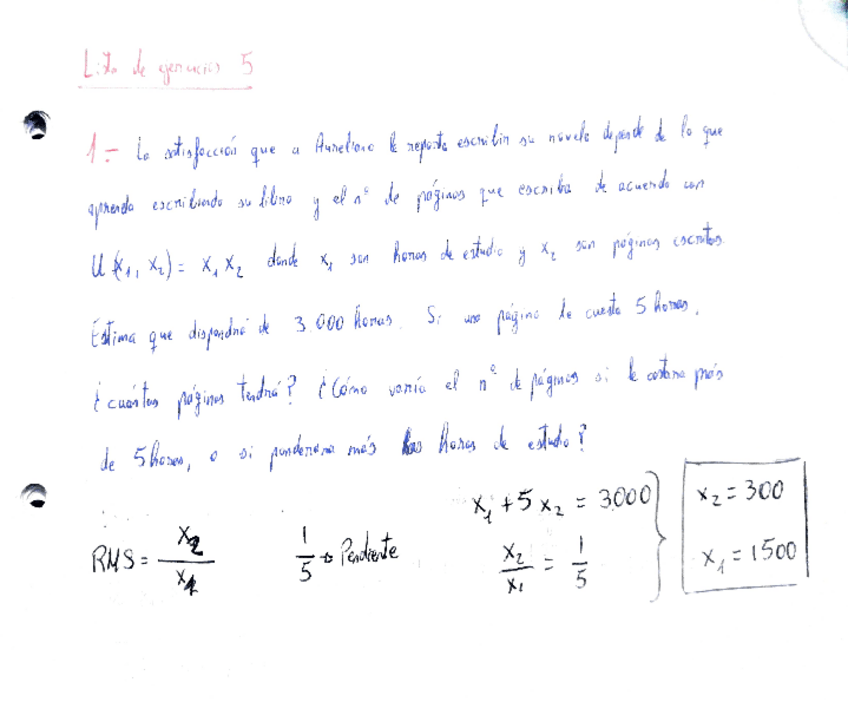 Lista de ejercicios 5
1.- La satisfacción que a Aureliano le reporta escribir su novela depende de lo que
aprenda escribiendo su libro y el nº de páginas que escriba de acuerdo con
U(x₁, x₂) = x₁ x₂ donde x₁ son horas de estudio y x₂ son páginas escritas.
Estima que dispondrá de 3.000 horas. Si una página le cuesta 5 horas,
¿cuántas páginas tendrá? ¿Cómo varía el nº de páginas si le costara más
de 5 horas, o si ponderara más las horas de estudio?
RMS = x₂/x₁
1/5 → Pendiente
x₁ + 5x₂ = 3000
x₂/x₁ = 1/5
x₂ = 300
x₁ = 1500